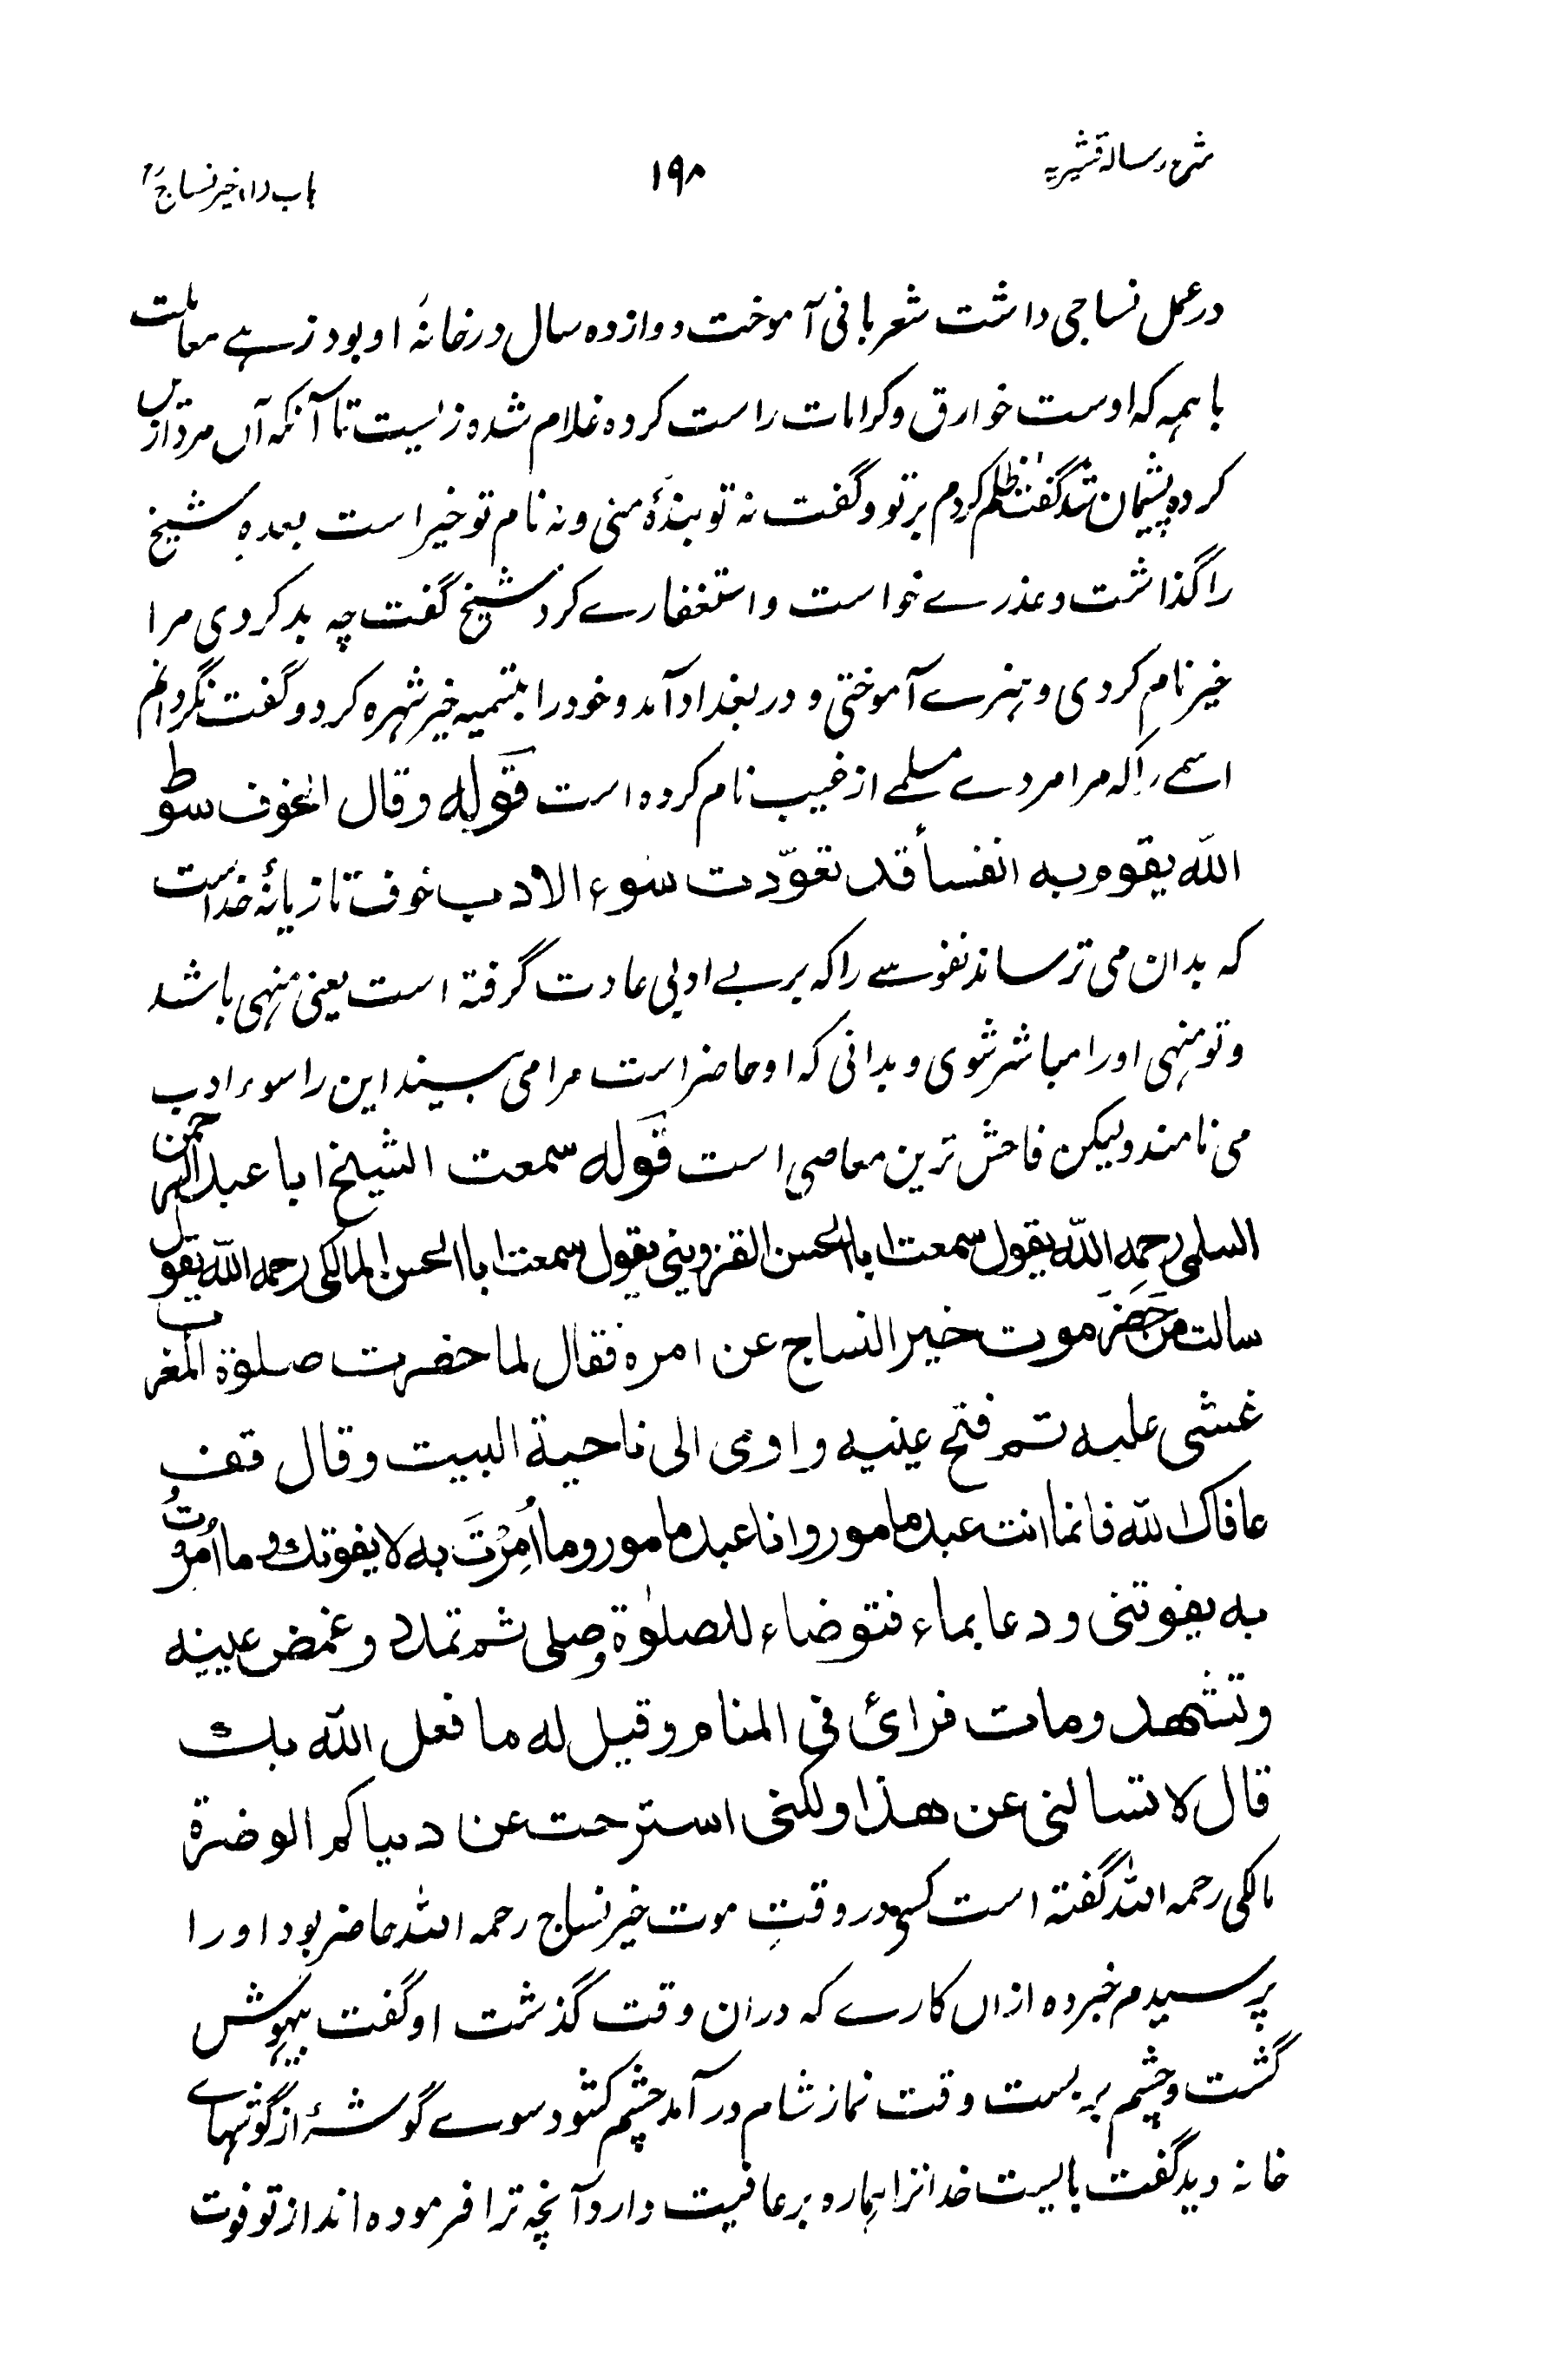 شرح رسالہ قشیریہ
۱۹۸
باب (۱) خیر نساج رح
در عمل نساجی داشت شعر بافی آموخت دوازده سال در خانۂ او بود زہے معاملت
با ہمہ کہ اوست خوارق و کرامات راست کرده غلام شده زیست تا آنکہ آں مرد ازیں
کرده پشیمان شد گفت ظلم کردم بر تو و گفت نہ تو بندۂ منی و نہ نام تو خیر است بعدہ شیخ
را گذاشت و عذرے خواست و استغفارے کرد شیخ گفت چہ بد کردی مرا
خیر نام کردی و ہنرے آموختی و در بغداد آمد و خود را بتسمیہ خیر شہره کرد و گفت نگردانم
اسمے را کہ مرا مردے مسلمے از غیب نام کرده است قوله وقال الخوف سوط
الله يقوم به انفسا قد تعوّدت سوء الادب خوف تازیانۂ خداست
کہ بدان می ترساند نفوسے را کہ بر بے ادبی عادت گرفتہ است یعنی منہی باشد
و تو منہی او را مباشر شوی و بدانی کہ او حاضر است مرا می بیند این را سوء ادب
می نامند و لیکن فاحش ترین معاصی است قوله سمعت الشيخ ابا عبد الرحمن
السلمی رحمه الله يقول سمعت ابا الحسن القزويني يقول سمعت ابا الحسن المالکی رحمه الله يقول
سالت من حَضَرَ موت خير النساج عن امره فقال لما حضرت صلوة المغرب
غشی عليه ثم فتح عينيه واومی الی ناحية البيت وقال قف
عافاك الله فانما انت عبد مامور وانا عبد مامور وما اُمِرْتَ به لا يفوتك وما اُمِرْتُ
به يفوتنی ودعا بماء فتوضاء للصلوٰة وصلی ثم تمدد وغمض عينيه
وتشهد ومات فرائ فی المنام وقيل له ما فعل الله بك
قال لا تسالنی عن هذا ولكنی استرحت عن دنياكم الوضرة
مالکی رحمہ اللہ گفتہ است کسے در وقتِ موت خیر نساج رحمہ اللہ حاضر بود او را
پرسیدم خبر ده ازاں کارے کہ دران وقت گذشت او گفت بیہوش
گشت و چشم بہ بست وقت نماز شام در آمد چشم کشود سوے گوشۂ از گوشہاے
خانہ دید گفت بایست خدا ترا ہماره بر عافیت دارد آنچہ ترا فرموده اند از تو فوت